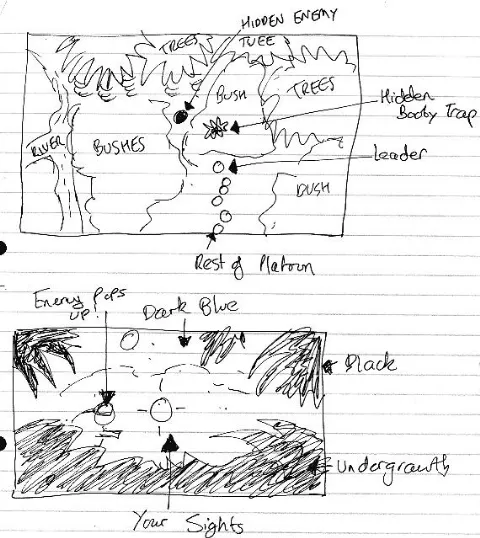 HIDDEN ENEMY
TREES
TREE
BUSH
TREES
Hidden
Booby Trap
RIVER
BUSHES
Leader
BUSH
Rest of Platoon
Enemy Pops
UP!
Dark Blue
Black
Undergrowth
Your Sights